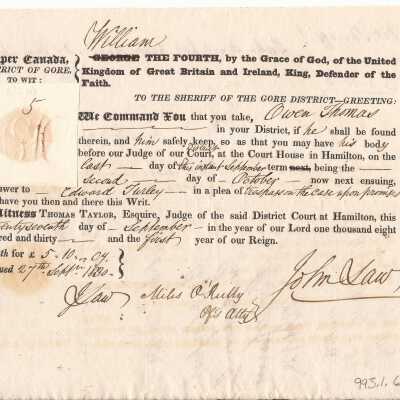 William
per Canada,
TRICT OF GORE.
TO WIT:
5
GEORGE THE FOURTH, by the Grace of God, of the United
Kingdom of Great Britain and Ireland, King, Defender of the
Faith.
TO THE SHERIFF OF THE GORE DISTRICT—GREETING:
We Command You that you take, Owen Thomas
in your District, if he shall be found
therein, and him safely keep, so as that you may have his body
before our Judge of our Court, at the Court House in Hamilton, on the
last day of this instant September term next, being the
second day of October now next ensuing,
swer to Edward Turley in a plea of trespass on the case upon promises
have you then and there this Writ.
Witness THOMAS TAYLOR, Esquire, Judge of the said District Court at Hamilton, this
entyseventh day of September in the year of our Lord one thousand eight
red and thirty and the first year of our Reign.
th for £ 5.10.04.
ued 27th Septr. 1830.
John Law
J Law
Miles O'Reilly
Pfs atty
993.1.6